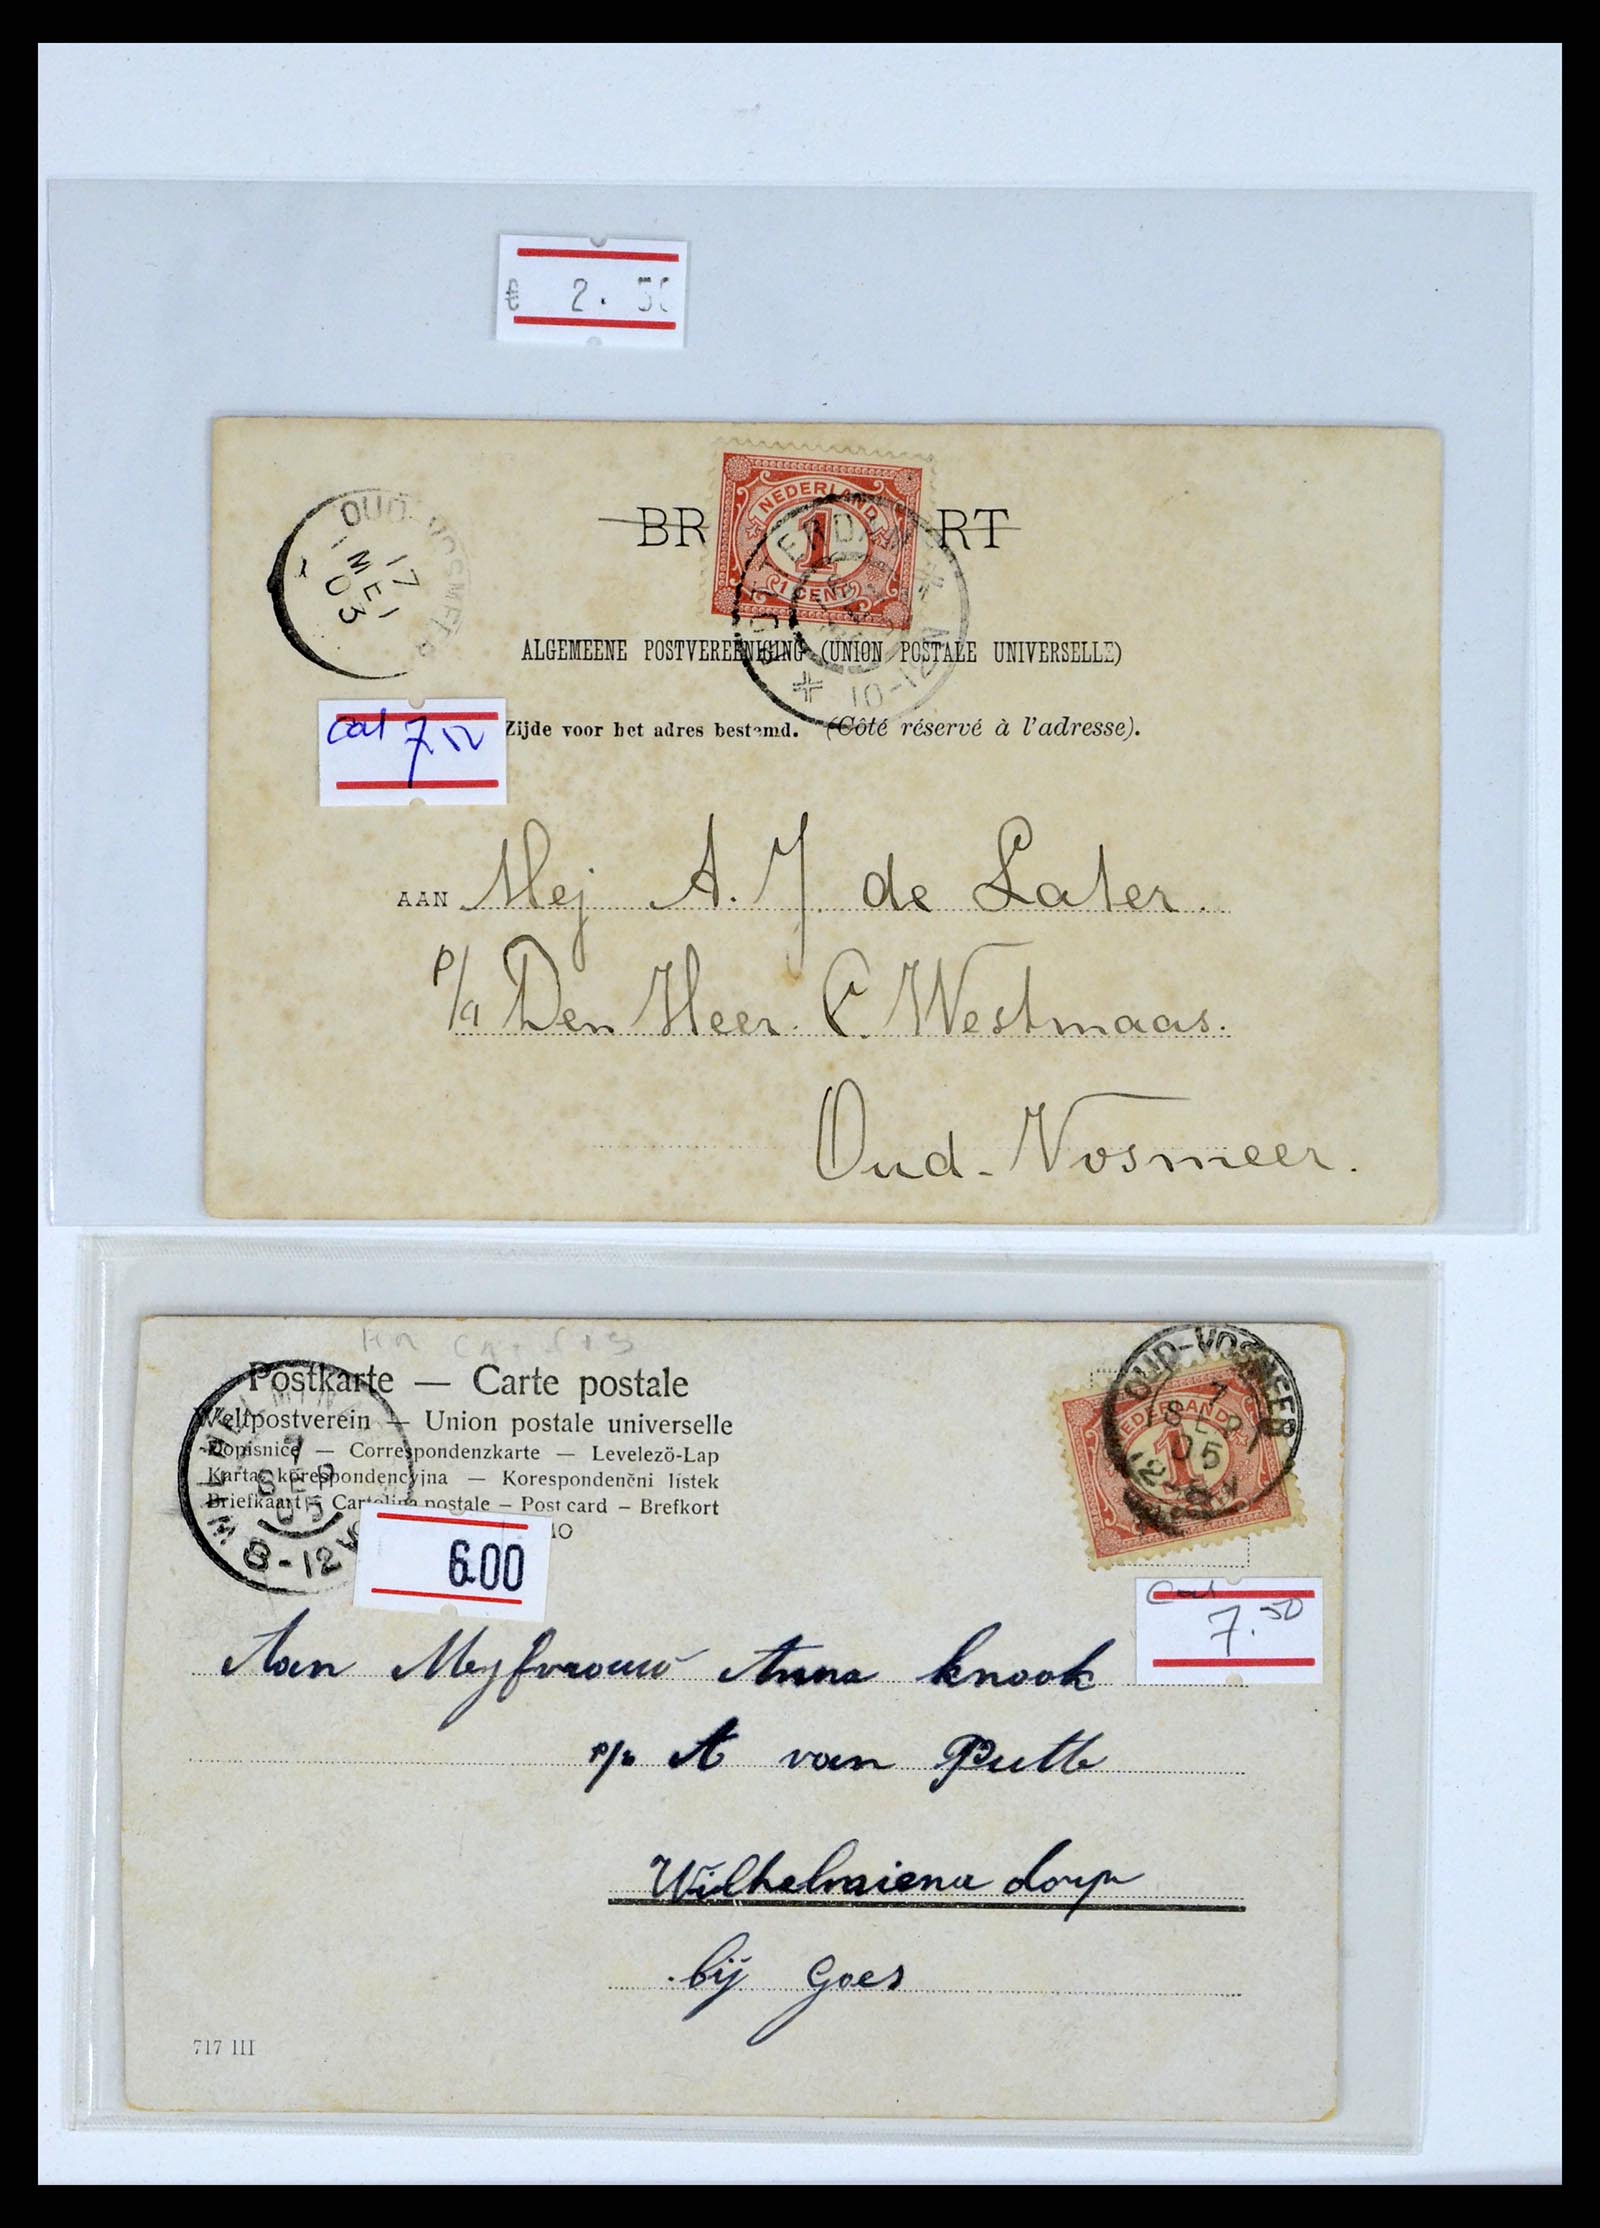 € 2.50
OUD-VOSMEER
17
MEI
03
BR RT
NEDERLAND
1
1 CENT
ROTTERDAM
10-12 N
ALGEMEENE POSTVEREENIGING (UNION POSTALE UNIVERSELLE)
Zijde voor het adres bestemd. (Côté réservé à l'adresse).
Cat 7.50
AAN Mej A. J. de Later.
p/a Den Heer C. Westmaas.
Oud-Vosmeer.
Postkarte — Carte postale
Weltpostverein — Union postale universelle
Dopisnice — Correspondenzkarte — Levelező-Lap
Karta korespondencyjna — Korespondenční lístek
Briefkaart – Cartolina postale – Post card – Brefkort
7
SEP
05
8-12V
6.00
OUD-VOSMEER
7
SEP
05
NEDERLAND
1
Cat
7.50
Aan Meyfvrouw Anna Knook
p/a A van Putte
Wilhelmiena dorp
bij Goes
717 III